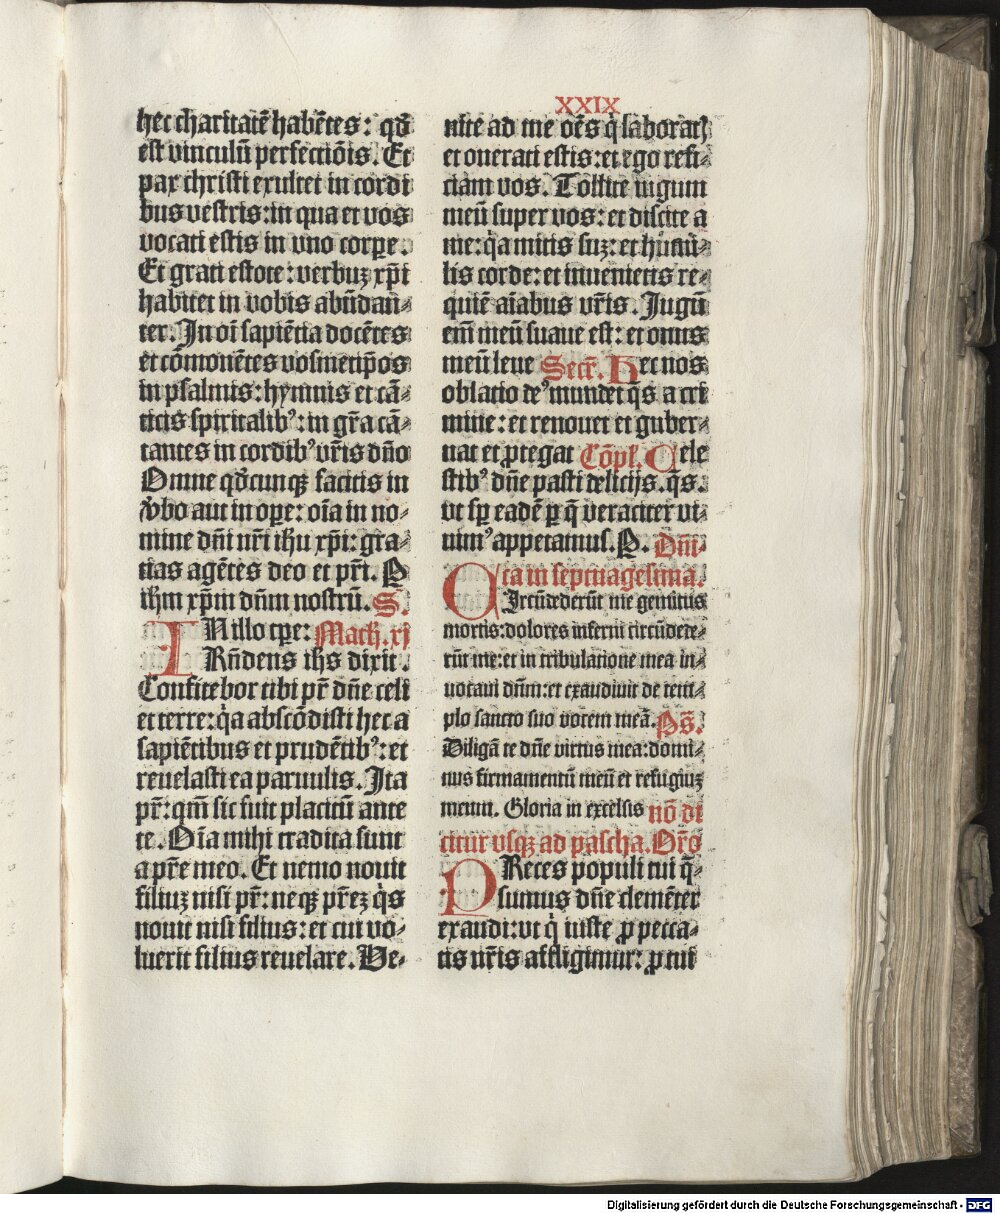 XXIX
hec charitatē habētes: qḋ
est vinculū perfectiōis. Et
pax christi exultet in cordi
bus vestris: in qua et vos
vocati estis in vno corꝑe.
Et grati estote: verbuꝫ xp̄i
habitet in vobis abūdan⸗
ter. In oī sapiētia docētes
et cōmonētes vosmetip̄os
in psalmis: hymnis et cā⸗
ticis spiritalibꝰ: in gr̄a cā⸗
tantes in cordibꝰ vr̄is dn̄o
Omne qḋcunqꝫ facitis in
v̓bo aut in oꝑe: oīa in no⸗
mine dn̄i nr̄i ihu xp̄i: gra⸗
tias agētes deo et pr̄i. P
ihm xp̄m dn̄m nostrū. S.
IN illo tꝑe: Math. xj
Rn̄dens ihs dixit.
Confitebor tibi pr̄ dn̄e celi
et terre: qͥa abscōdisti hec a
sapiētibus et prudētibꝰ: et
reuelasti ea paruulis. Ita
pr̄: qm̄ sic fuit placitū ante
te. Oīa mihi tradita sunt
a pr̄e meo. Et nemo nouit
filiuꝫ nisi pr̄: neqꝫ pr̄eꝫ qͥs
nouit nisi filius: et cui vo⸗
luerit filius reuelare. Ve⸗
nite ad me oēs qͥ laboratꝭ
et onerati estis: et ego refi⸗
ciam vos. Tollite iugum
meū super vos: et discite a
me: qͥa mitis suꝫ: et humi⸗
lis corde: et inuenietis re⸗
quiē aīabus vr̄is. Jugū
em̄ meū suaue est: et onus
meū leue Secr̄. Hec nos
oblatio deꝰ mundet qs̄ a cri
mine: et renouet et guber⸗
nat et ꝓtegat Cōpl. Cele
stibꝰ dn̄e pasti delicijs. qs̄.
vt sꝑ eadē ꝑ q̄ veraciter vi
uimꝰ appetamus. P. Dn̄i⸗
ca in septuagesima.
CIrcūdederūt me gemitus
mortis: dolores inferni circūdede⸗
rūt me: et in tribulatione mea in⸗
uocaui dn̄m: et exaudiuit de tem⸗
plo sancto suo vocem meā. Ps̄.
Diligā te dn̄e virtus mea: domi⸗
nus firmamentū meū et refugiuꝫ
meum. Gloria in excelsis nō di
citur vsqꝫ ad pascha. Or̄o
PReces populi tui q̄⸗
sumus dn̄e clemēter
exaudi: vt qͥ iuste ꝓ pecca⸗
tis nr̄is affligimur: ꝓ tui
Digitalisierung gefördert durch die Deutsche Forschungsgemeinschaft - DFG